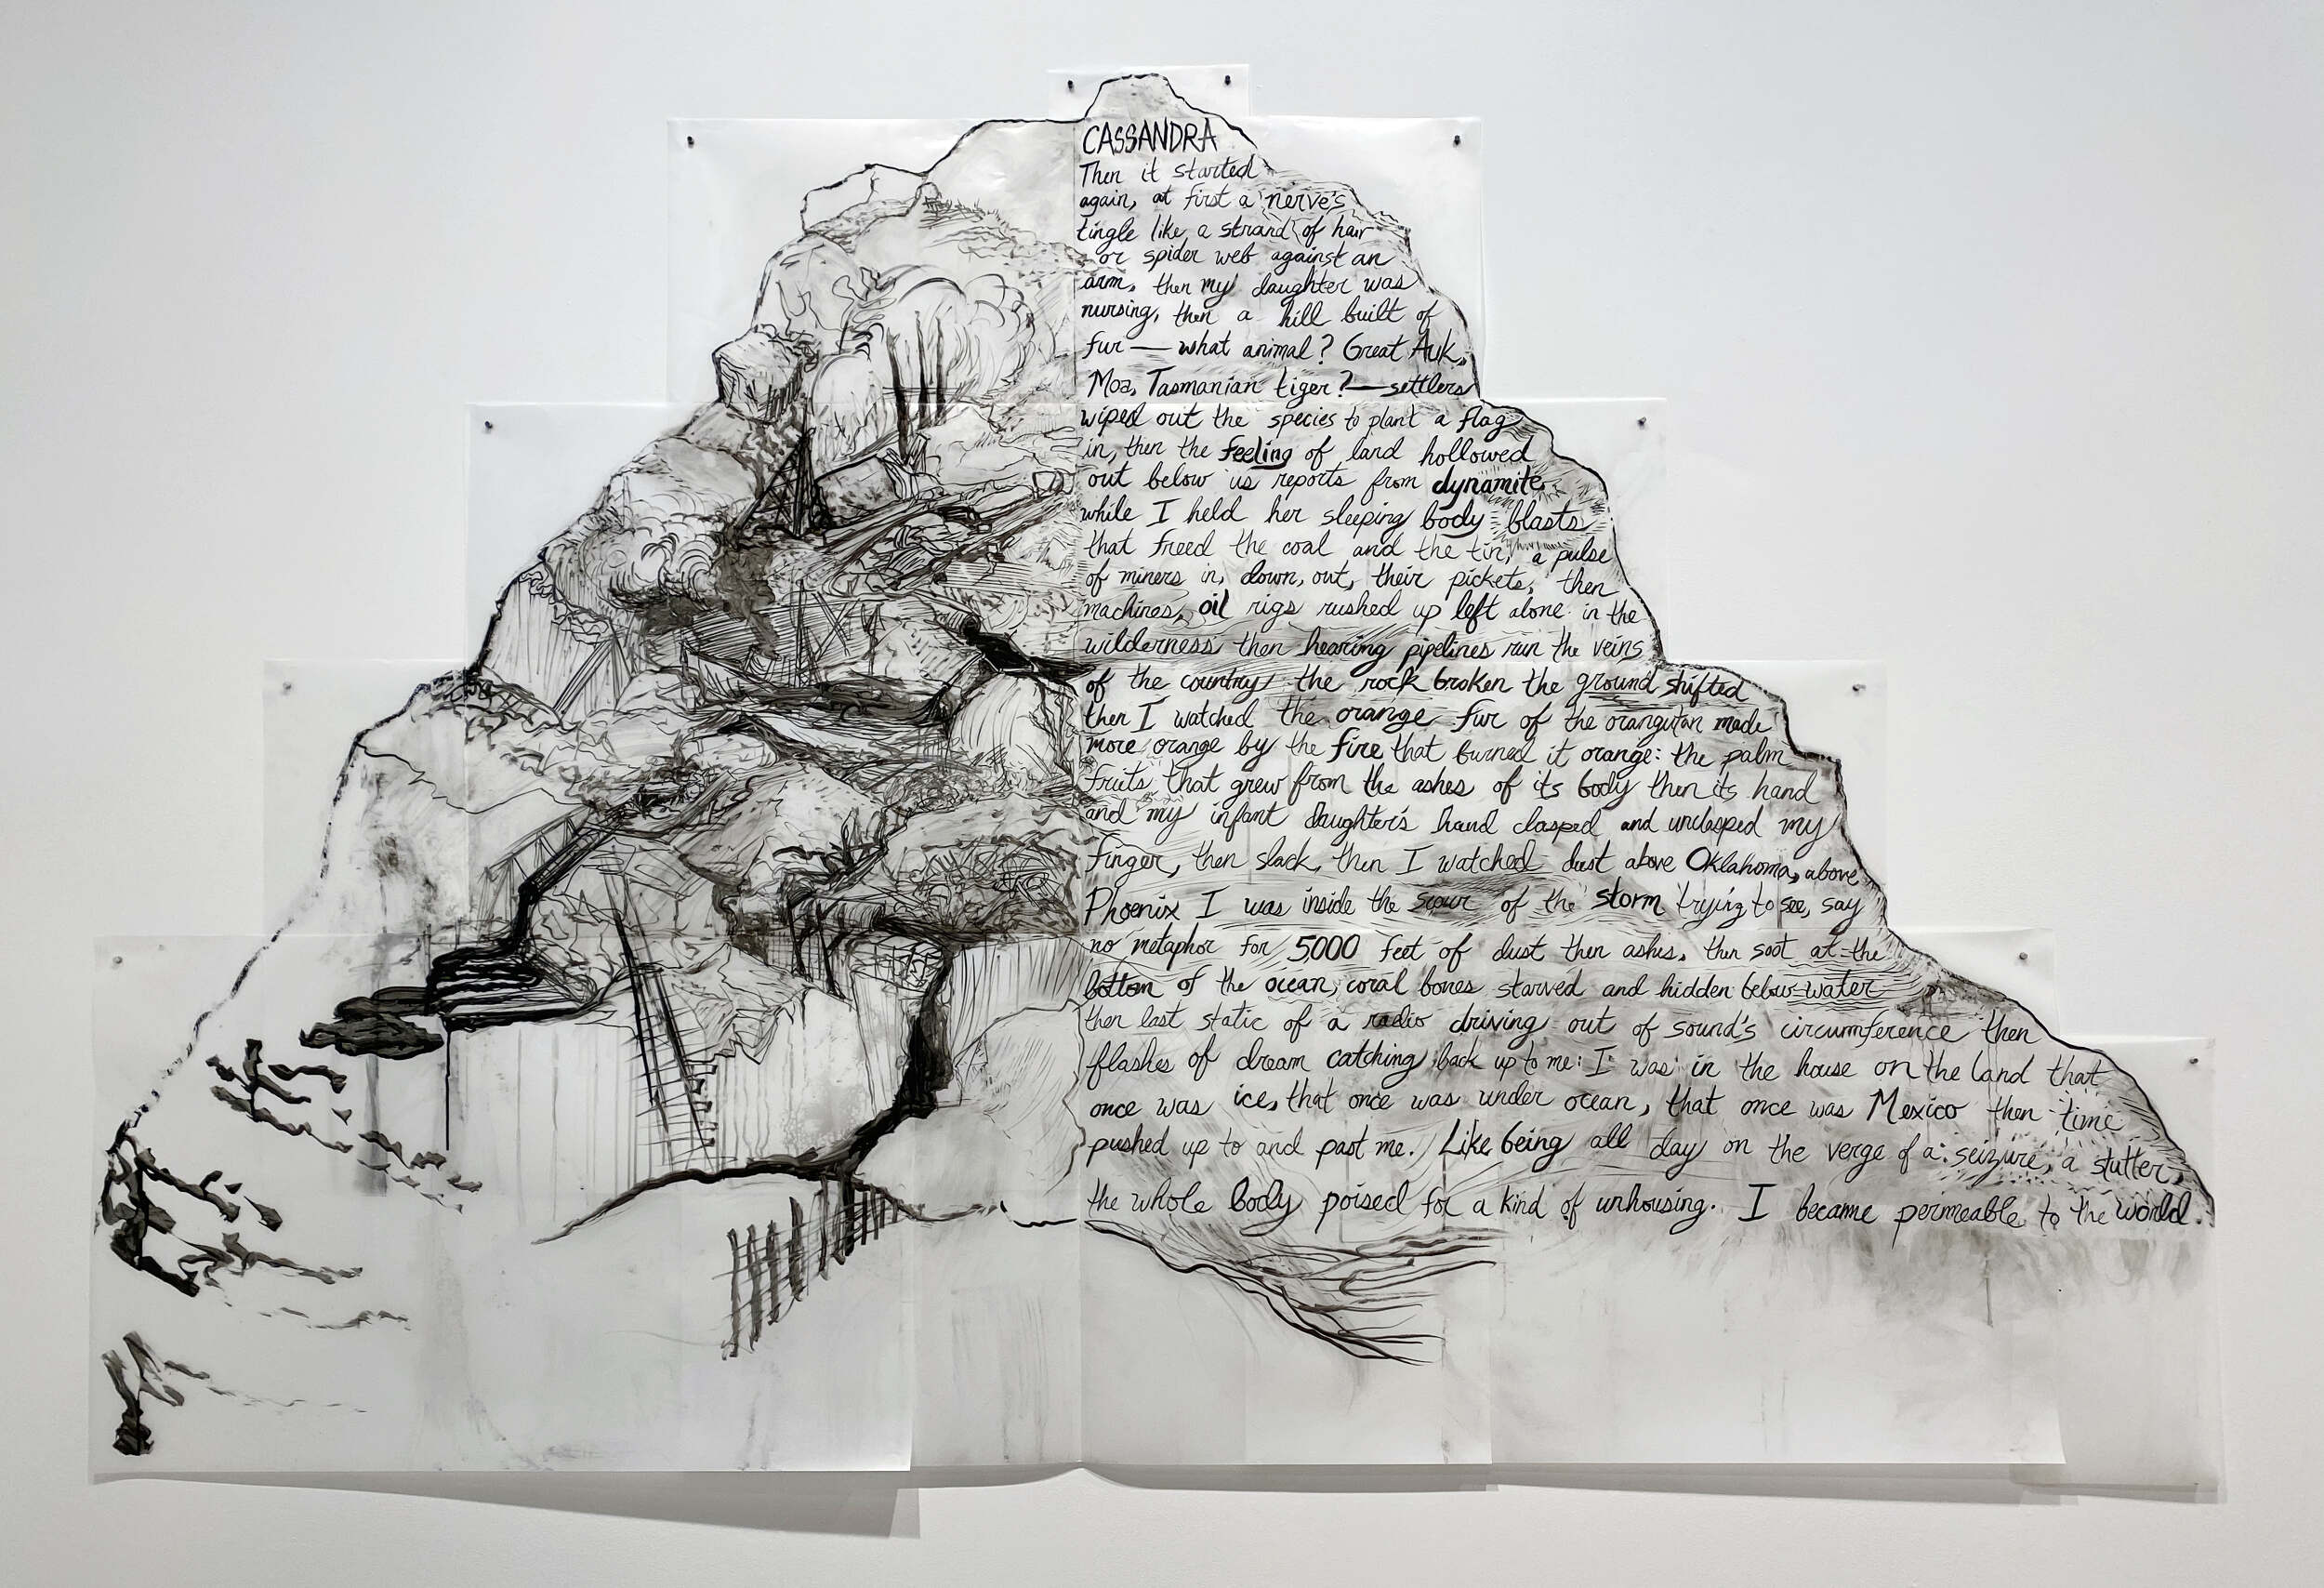 CASSANDRA
Then it started
again, at first a nerve's
tingle like a strand of hair
or spider web against an
arm, then my daughter was
nursing, then a hill built of
fur — what animal? Great Auk,
Moa, Tasmanian tiger? — settlers
wiped out the species to plant a flag
in, then the feeling of land hollowed
out below us reports from dynamite
while I held her sleeping body blasts
that freed the coal and the tin, a pulse
of miners in, down, out, their pickets, then
machines, oil rigs rushed up left alone in the
wilderness then hearing pipelines run the veins
of the country the rock broken the ground shifted
then I watched the orange fur of the orangutan made
more orange by the fire that burned it orange: the palm
fruits that grew from the ashes of its body then its hand
and my infant daughter's hand clasped and unclasped my
finger, then slack, then I watched dust above Oklahoma, above
Phoenix I was inside the scour of the storm trying to see, say
no metaphor for 5000 feet of dust then ashes, then soot at the
bottom of the ocean, coral bones starved and hidden below water
then last static of a radio driving out of sound's circumference then
flashes of dream catching back up to me: I was in the house on the land that
once was ice, that once was under ocean, that once was Mexico then time
pushed up to and past me. Like being all day on the verge of a seizure, a stutter,
the whole body poised for a kind of unhousing. I became permeable to the world.